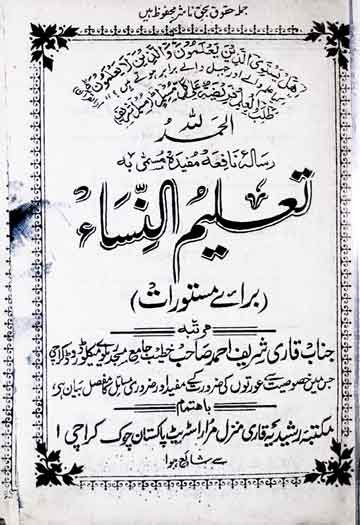 جملہ حقوق بحق ناشر محفوظ ہیں
هل يستوى الذين يعلمون والذين لا يعلمون
کیا علم والے اور جہل والے برابر ہوتے ہیں
طلب العلم فريضة على كل مسلم
الحمد للہ
رسالہ نافعہ مفیدہ مسمٰی بہ
تعلیم النِّسَاء
(برائے مستورات)
مرتبہ
جناب قاری شریف احمد صاحب خطیب جامع مسجد ریلوے میکلوڈ روڈ کراچی
جس میں خصوصیت سے عورتوں کی ضرورت کے مفید اور ضروری مسائل کا مفصل بیان ہے
باہتمام
مکتبہ رشیدیہ قاری منزل مزار اسٹریٹ پاکستان چوک کراچی ۱
سے شائع ہوا